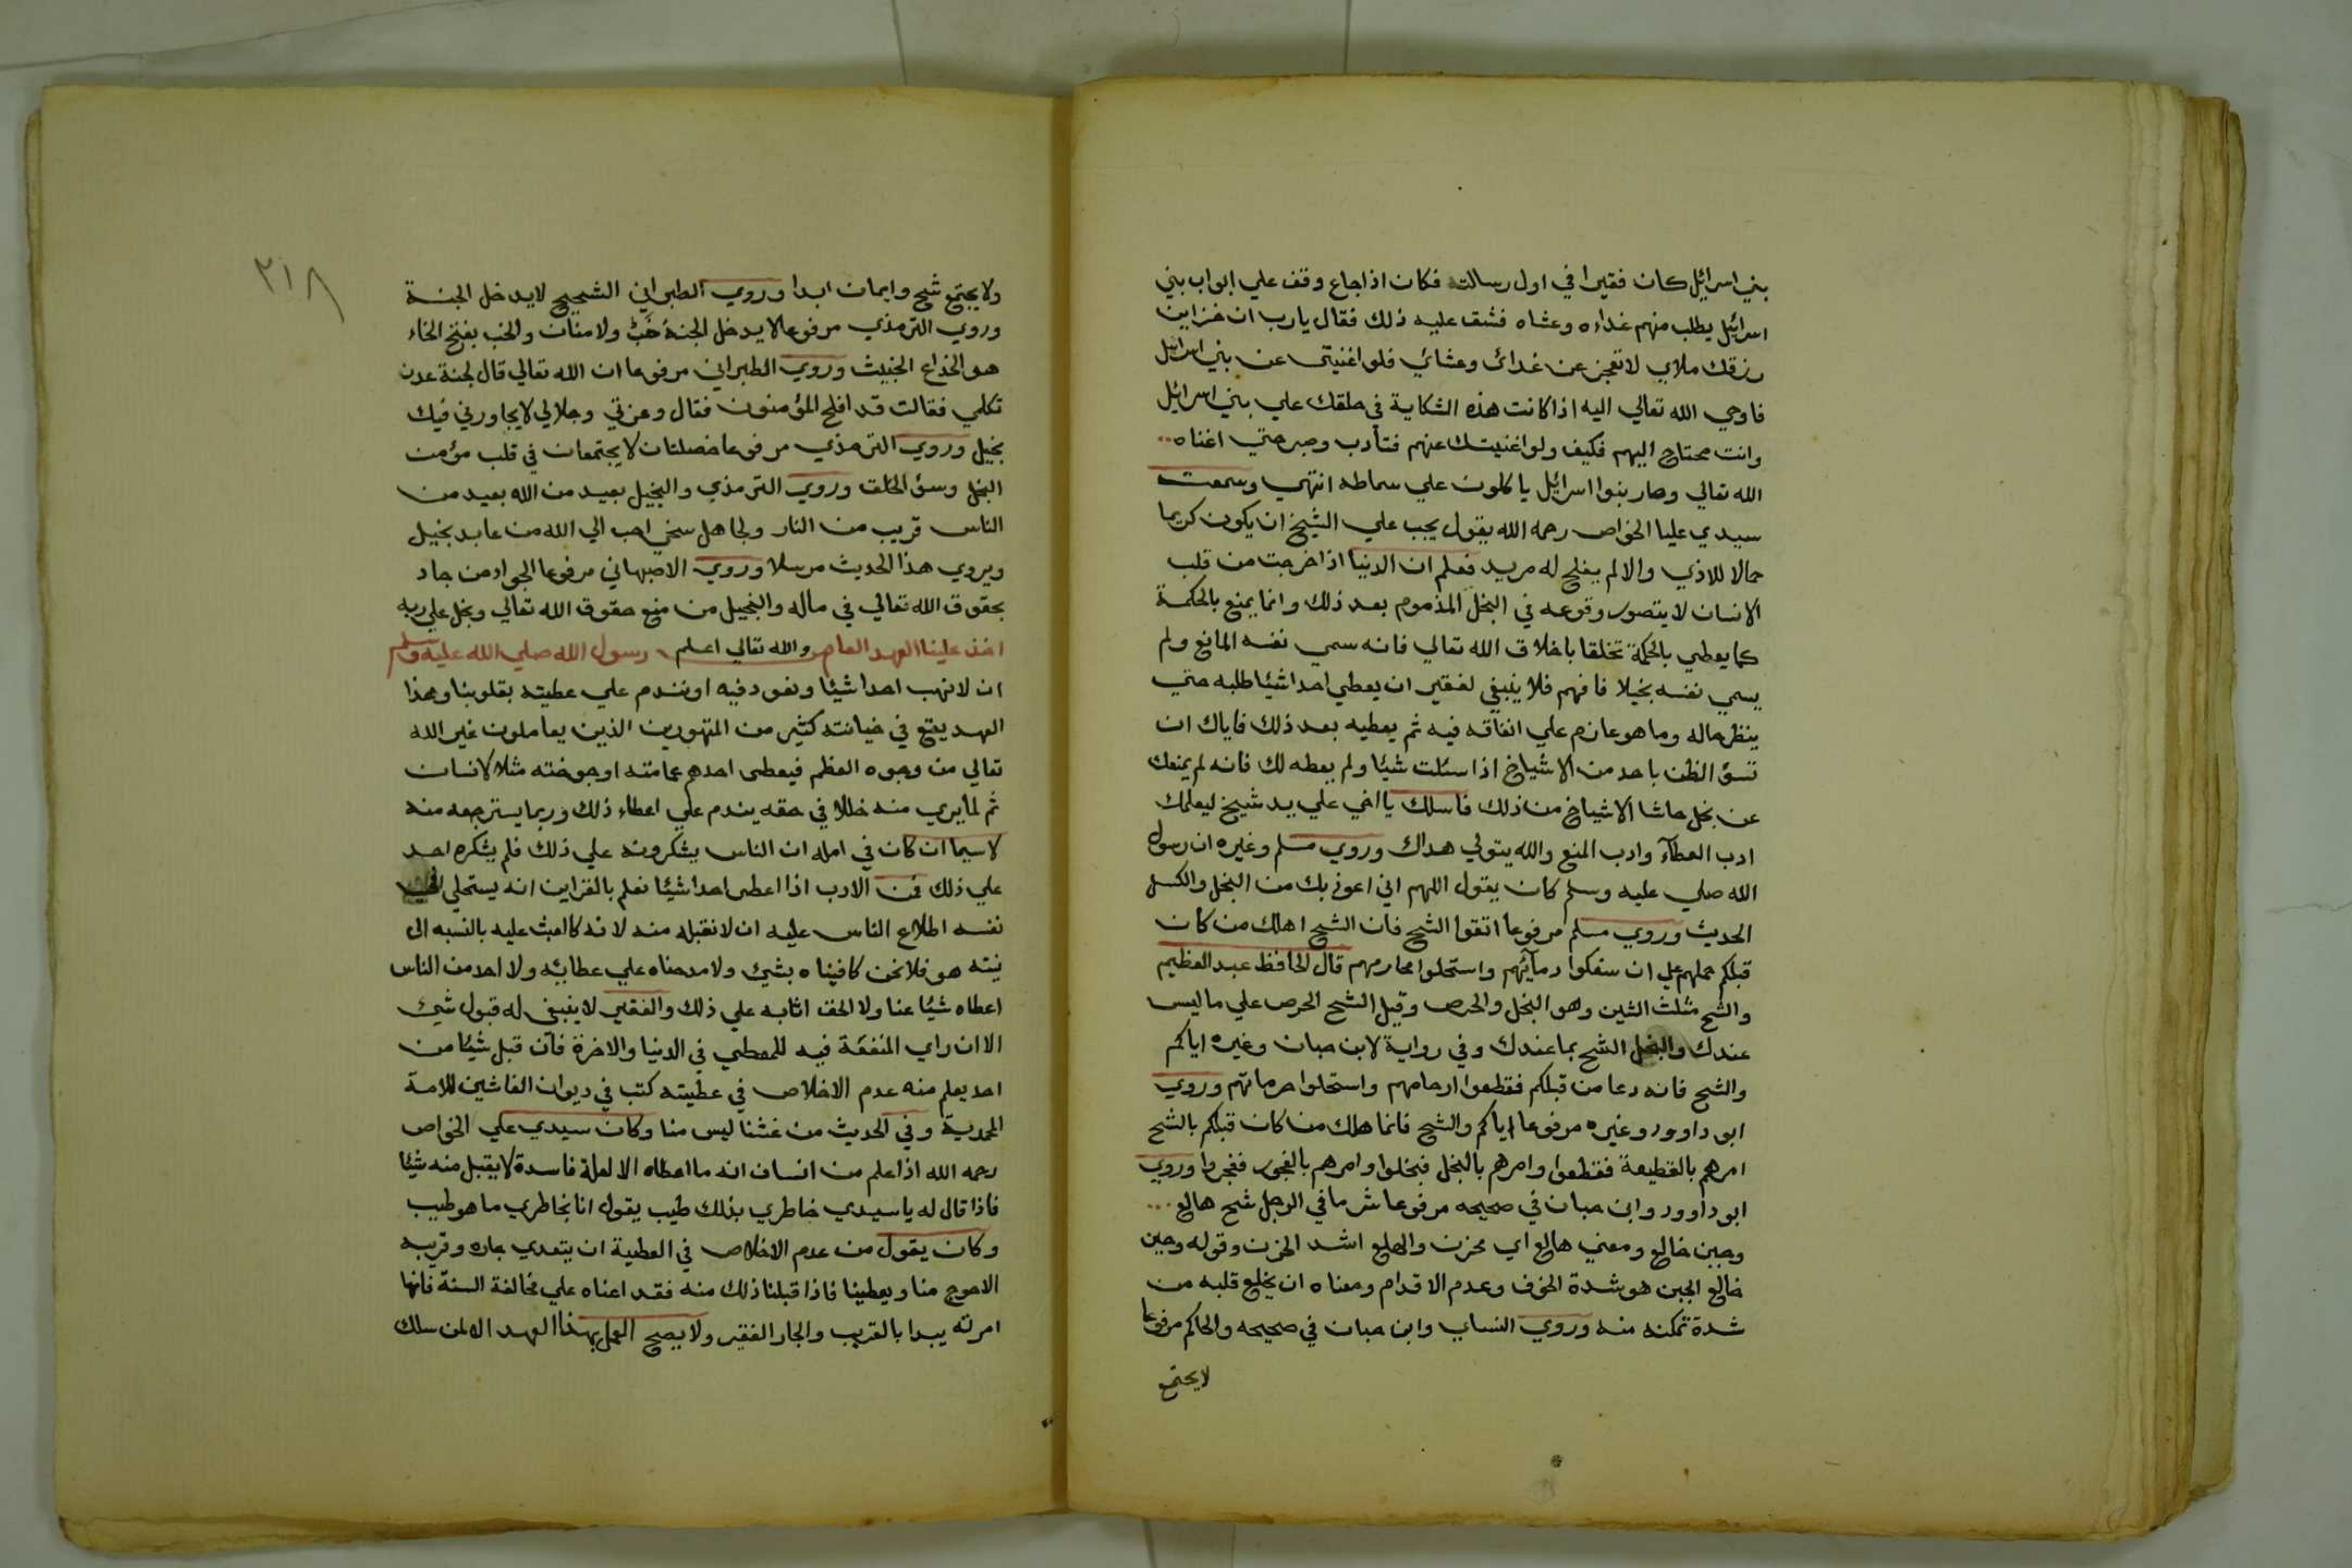 بني اسرائيل كان فقيرا في اول رسالته فكان اذا جاع وقف علي ابواب بني
اسرائيل يطلب منهم غداه وعشاه فشق عليه ذلك فقال يارب ان خزاين
رزقك ملاي لا تعجز عن غدائ وعشائ فلو اغنيتى عن بني اسرائيل
فاوحي الله تعالي اليه اذا كانت هذه الشكاية في حلقك علي بني اسرائيل
وانت محتاج اليهم فكيف ولو اغنيتك عنهم فتأدب وصبر حتي اغناه
الله تعالي وصار بنوا اسرائيل ياكلون علي سماطه انتهي وسمعت
سيدي عليا الخواص رحمه الله يقول يجب علي الشيخ ان يكون كريما
حمالا للاذي والا لم يفلح له مريد فعلم ان الدنيا اذا خرجت من قلب
الانسان لا يتصور وقوعه في البخل المذموم بعد ذلك وانما يمنع بالحكمة
كما يعطي بالحكمة تخلقا باخلاق الله تعالي فانه سمي نفسه المانع ولم
يسمي نفسه بخيلا فافهم فلا ينبغي لفقير ان يعطي احدا شيئا طلبه حتي
ينظر حاله وما هو عازم علي انفاقه فيه ثم يعطيه بعد ذلك فاياك ان
تسؤ الظن باحد من الاشياخ اذا سئلت شيئا ولم يعطه لك فانه لم يمنعك
عن بخل حاشا الاشياخ من ذلك فاسلك يا اخي علي يد شيخ ليعلمك
ادب العطآء وادب المنع والله يتولي هداك وروي مسلم وغيره ان رسول
الله صلي عليه وسلم كان يقول اللهم اني اعوذ بك من البخل والكسل
الحديث وروي مسلم مرفوعا اتقوا الشح فان الشح اهلك من كان
قبلكم حملهم علي ان سفكوا دمآئهم واستحلوا محارمهم قال الحافظ عبد العظيم
والشح مثلث الشين وهو البخل والحرص وقيل الشح الحرص علي ما ليس
عندك والبخل الشح بما عندك وفي رواية لابن حبان وغيره اياكم
والشح فانه دعا من قبلكم فقطعوا ارحامهم واستحلوا حرماتهم وروي
ابو داوود وغيره مرفوعا اياكم والشح فانما هلك من كان قبلكم بالشح
امرهم بالقطيعة فقطعوا وامرهم بالبخل فبخلوا وامرهم بالفجور ففجروا وروي
ابو داوود وابن حبان في صحيحه مرفوعا شر ما في الرجل شح هالع
وجبن خالع ومعني هالع اي محزن والهلع اشد الحزن وقوله وجبن
خالع الجبن هو شدة الخوف وعدم الاقدام ومعناه ان يخلع قلبه من
شدة تمكنه منه وروي النساي وابن حبان في صحيحه والحاكم مرفوعا
لا يجتمع
٢١٨
ولا يجتمع شح وايمان ابدا وروي الطبراني الشحيح لا يدخل الجنة
وروي الترمذي مرفوعا لا يدخل الجنة خَبٌّ ولا منان والخب بفتح الخاء
هو الخداع الخبيث وروي الطبراني مرفوعا ان الله تعالي قال لجنة عدن
تكلمي فقالت قد افلح المؤمنون فقال وعزتي وجلالي لا يجاورني فيك
بخيل وروي الترمذي مرفوعا خصلتان لا يجتمعان في قلب مؤمن
البخل وسؤ الخلق وروي الترمذي والبخيل بعيد من الله بعيد من
الناس قريب من النار ولجاهل سخي احب الي الله من عابد بخيل
ويروي هذا الحديث مرسلا وروي الاصبهاني مرفوعا الجواد من جاد
بحقوق الله تعالي في ماله والبخيل من منع حقوق الله تعالي وبخل علي ربه
اخذ علينا العهد العام والله تعالي اعلم رسول الله صلي الله عليه وسلم
ان لا نهب احدا شيئا ونعود فيه او نندم علي عطيته بقلوبنا وهذا
العهد يقع في خيانته كثير من المتهورين الذين يعاملون غير الله
تعالي من وجوه العظم فيعطى احدهم عمامته او جوخته مثلا لانسان
ثم لما يري منه خللا في حقه يندم علي اعطاء ذلك وربما يسترجعه منه
لاسيما ان كان في امله ان الناس يشكرونه علي ذلك فلم يشكره احد
علي ذلك فمن الادب اذا اعطى احدا شيئا نعلم بالقزاين انه يستحلي في
نفسه اطلاع الناس عليه ان لا نقبله منه لانه كالعبث عليه بالنسبه الى
نيته هو فلا نحن كافيناه بشئ ولا مدحناه علي عطايئه ولا احد من الناس
اعطاه شيئا عنا ولا الحق اثابه علي ذلك والفقير لا ينبغي له قبول شيئ
الا ان راي المنفعة فيه للمعطي في الدنيا والاخرة فآن قبل شيئا من
احد يعلم منه عدم الاخلاص في عطيته كتب في ديوان الغاشين للامة
المحمدية وفي الحديث من غشنا ليس منا وكان سيدي علي الخواص
رحمه الله اذا علم من انسان انه ما اعطاه الا لعلة فاسدة لا يقبل منه شيئا
فاذا قال له يا سيدي خاطري بذلك طيب يقول انا بخاطري ما هو طيب
وكان يقول من عدم الاخلاص في العطية ان يتعدي جاره وقريبه
الاحوج منا ويعطينا فاذا قبلنا ذلك منه فقد اعناه علي مخالفة السنة فانها
امرته يبدا بالقريب والجار الفقير ولا يصح العمل بهذا العهد الا لمن سلك